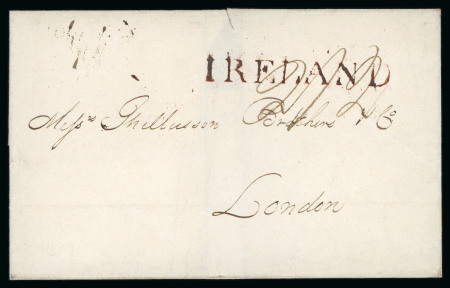 IRELAND
Messrs Thellusson Brothers & Co
London